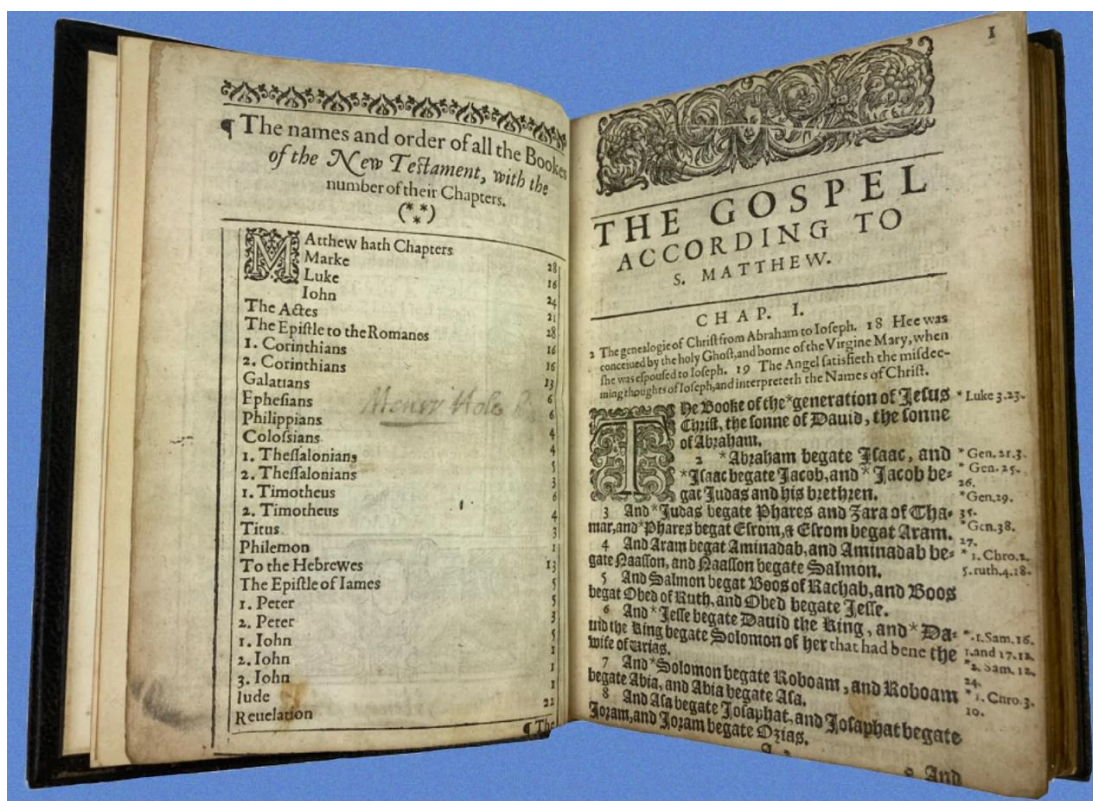 ¶ The names and order of all the Bookes
of the New Teſtament, with the
number of their Chapters.
(***)
MAtthew hath Chapters 28
Marke 16
Luke 24
Iohn 21
The Actes 28
The Epiſtle to the Romanes 16
1. Corinthians 16
2. Corinthians 13
Galatians 6
Epheſians 6
Henry Hole
Philippians 4
Coloſsians 4
1. Theſſalonians 5
2. Theſſalonians 3
1. Timotheus 6
2. Timotheus 4
Titus 3
Philemon 1
To the Hebrewes 13
The Epiſtle of Iames 5
1. Peter 5
2. Peter 3
1. Iohn 5
2. Iohn 1
3. Iohn 1
Iude 1
Reuelation 22
¶ The
1
THE GOSPEL
ACCORDING TO
S. MATTHEW.
CHAP. I.
2 The genealogie of Chriſt from Abraham to Ioſeph. 18 Hee was
conceiued by the holy Ghoſt, and borne of the Virgine Mary, when
ſhe was eſpouſed to Ioſeph. 19 The Angel ſatisfieth the miſdee-
ming thoughts of Ioſeph, and interpreteth the Names of Chriſt.
THe Booke of the *generation of Jeſus *Luke 3.23.
Chriſt, the ſonne of Dauid, the ſonne
of Abraham.
2 *Abraham begate Iſaac, and *Gen. 21.3.
*Iſaac begate Jacob, and *Jacob be- *Gen. 25.
26.
gat Judas and his brethren. *Gen. 29.
3 And *Judas begate Phares and Zara of Tha- 35.
mar, and *Phares begat Eſrom, & Eſrom begat Aram. *Gen. 38.
27.
4 And Aram begat Aminadab, and Aminadab be- *1. Chro. 2.
gate Naaſſon, and Naaſſon begate Salmon. 5. ruth. 4.18.
5 And Salmon begat Boos of Rachab, and Boos
begat Obed of Ruth, and Obed begate Jeſſe.
6 And *Jeſſe begate Dauid the King, and *Da- *1. Sam. 16.
uid the King begate Solomon of her that had bene the 1. and 17.12.
wife of Urias. *2. Sam. 12.
24.
7 And *Solomon begate Roboam, and Roboam *1. Chro. 3.
begate Abia, and Abia begate Aſa. 10.
8 And Aſa begate Joſaphat, and Joſaphat begate
Joram, and Joram begate Ozias.
9 And